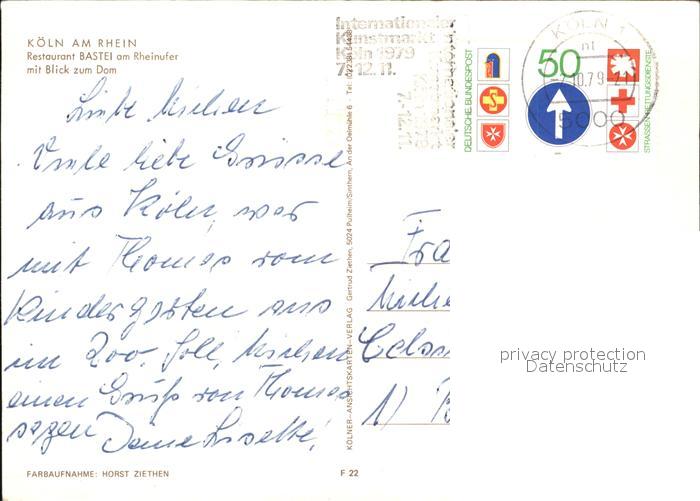 KÖLN AM RHEIN
Restaurant BASTEI am Rheinufer
mit Blick zum Dom
Viele liebe Grüsse
aus Köln, war
mit Thomas vom
Kindergarten aus
im Zoo. Soll
einen Gruß von Thomas
sagen Deine Lisette!
FARBAUFNAHME: HORST ZIETHEN
F 22
KÖLNER-ANSICHTSKARTEN-VERLAG Gertrud Ziethen, 5024 Pulheim/Sinthern, An der Oelmühle 6
Internationaler
Kunstmarkt
Köln 1979
7.-12.11.
DEUTSCHE BUNDESPOST
50
STRASSEN-RETTUNGSDIENSTE
KÖLN 1
5000
Fra
1)
privacy protection
Datenschutz